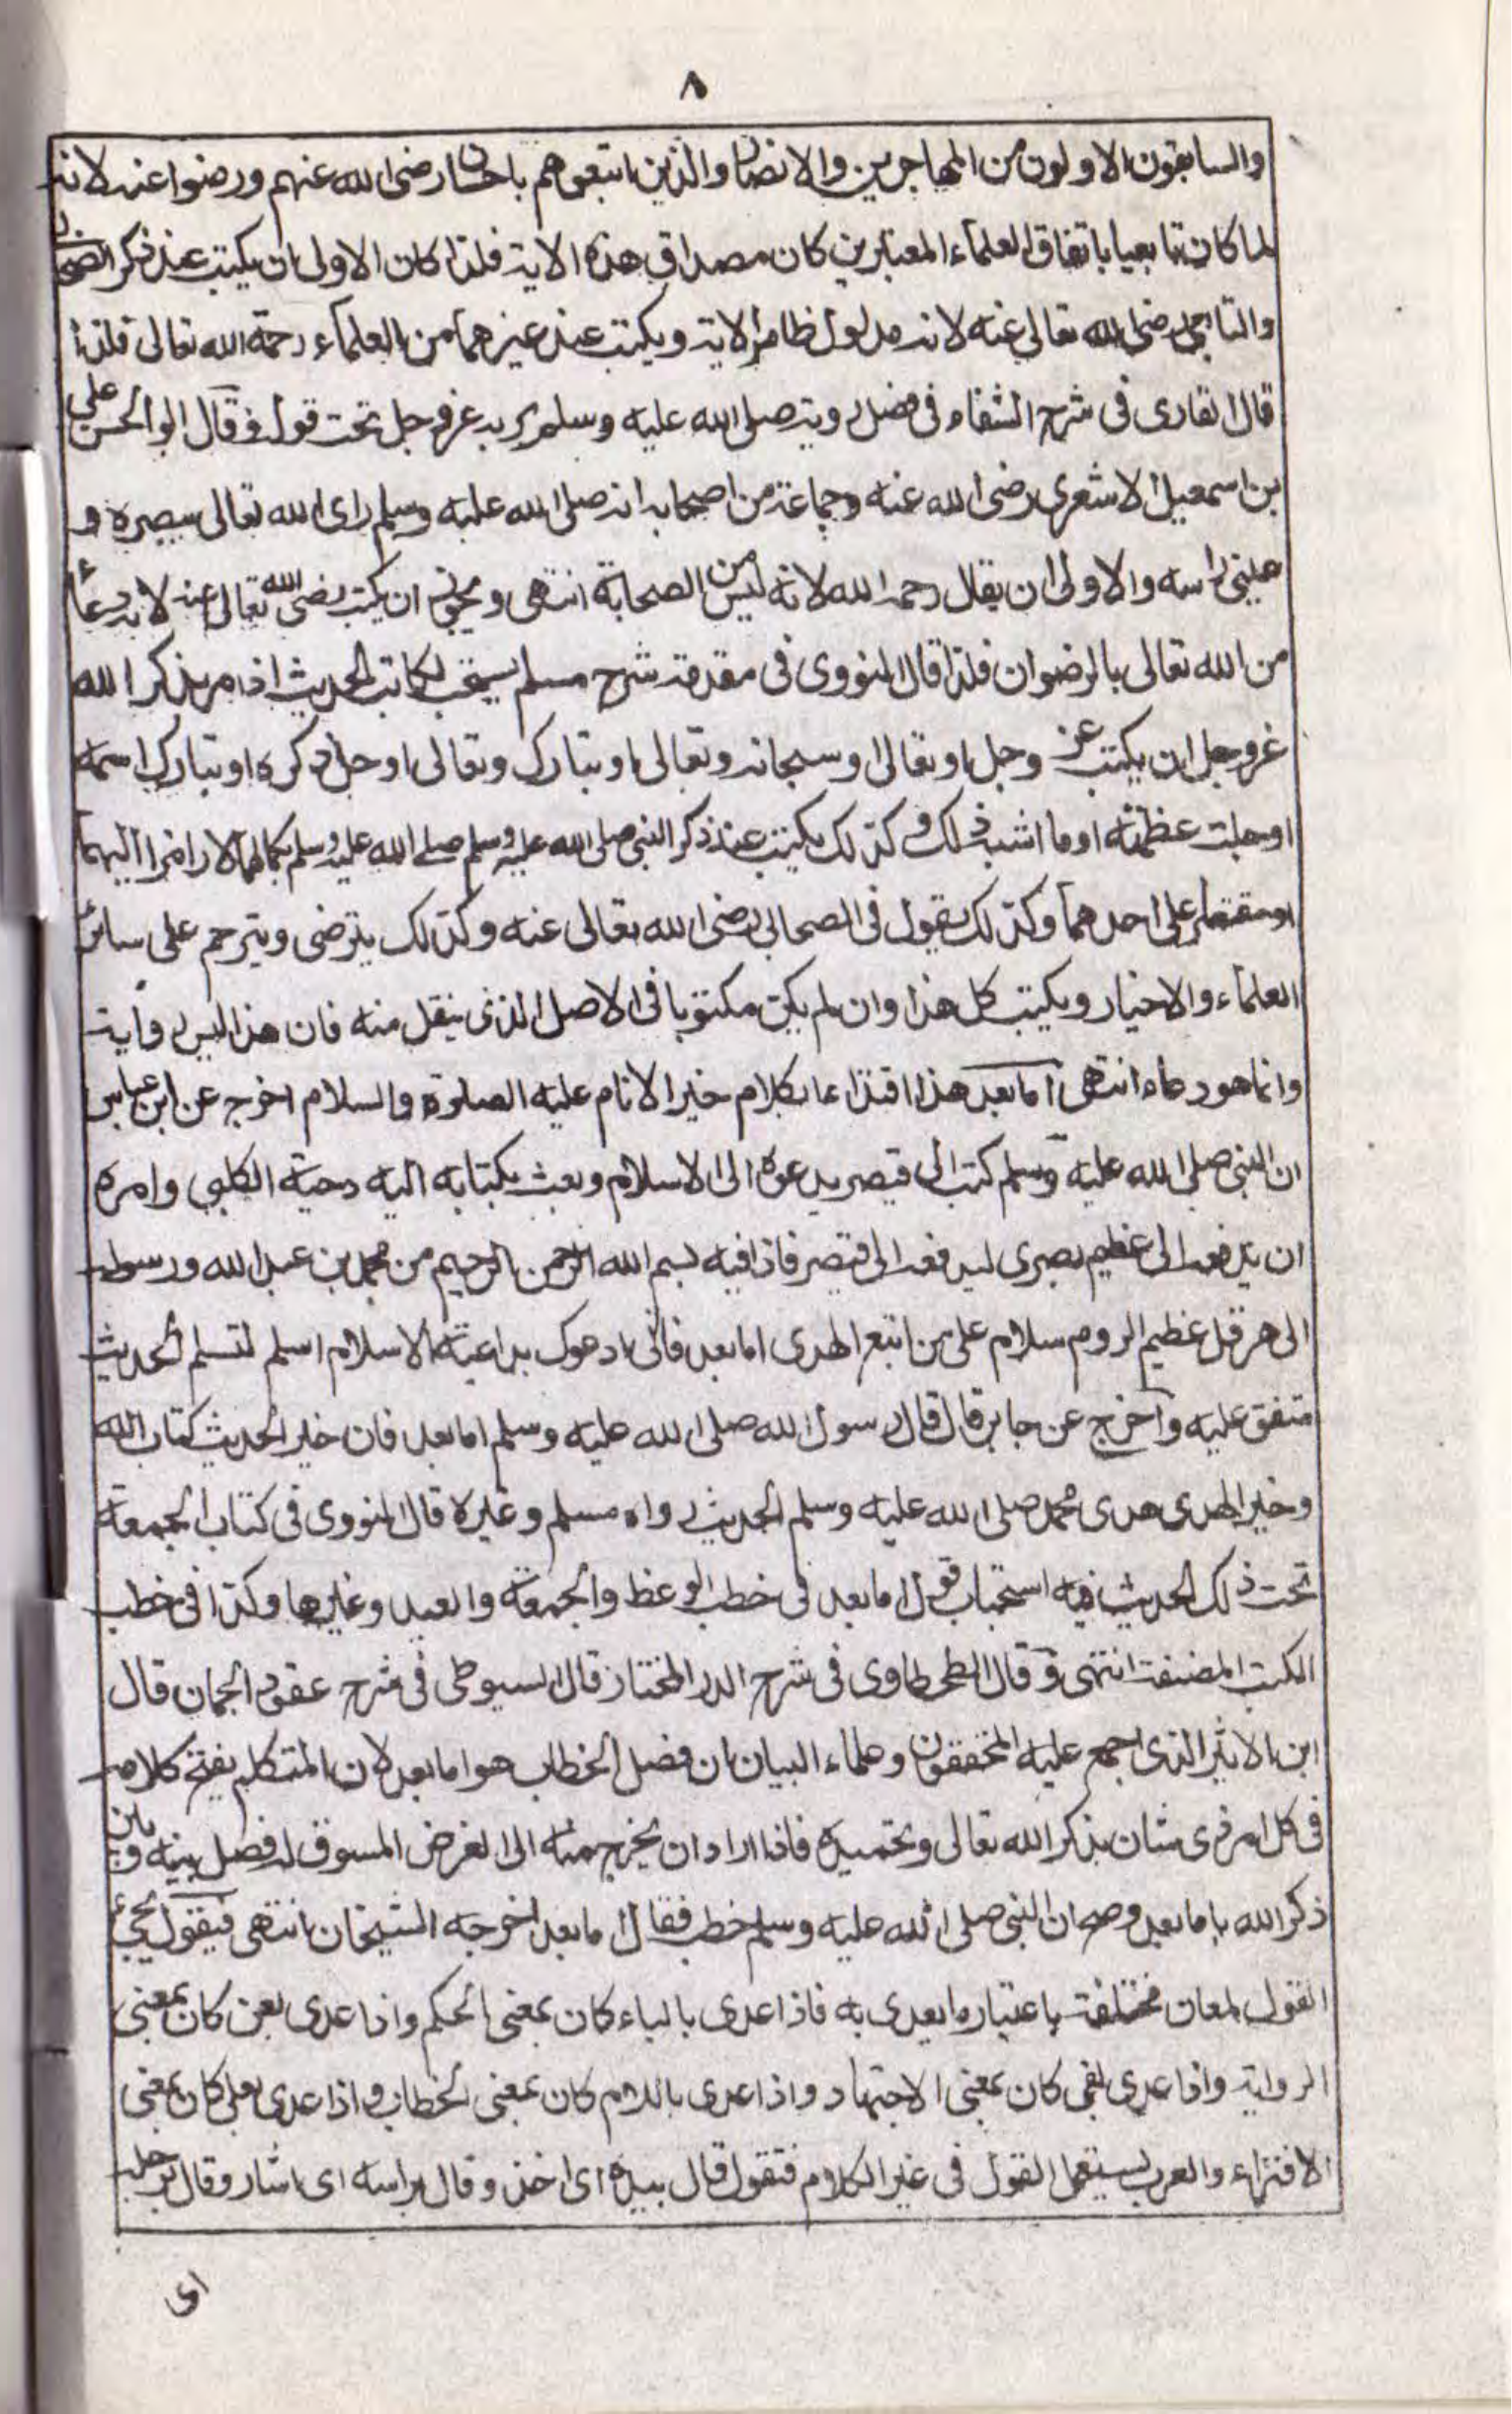 ٨
والسابقون الاولون من المهاجرين والانصار والذين اتبعوهم باحسان رضى الله عنهم ورضوا عنه لانه
لما كان تابعيا باتفاق العلماء المعتبرين كان مصداق هذه الاية فلذا كان الاولى ان يكتب عند ذكر الصحابى
والتابعى رضى الله تعالى عنه لانه مدلول ظاهر الاية ويكتب عند غيرهما من العلماء رحمة الله تعالى فلذا
قال القارى فى شرح الشفاء فى فصل رويته صلى الله عليه وسلم ربه عز وجل تحت قوله وقال ابو الحسن على
بن اسمعيل الاشعرى رضى الله عنه وجماعة من اصحابه انه صلى الله عليه وسلم راى الله تعالى ببصره و
عينى راسه والاولى ان يقال رحمه الله لانه ليس من الصحابة انتهى ويجوز ان يكتب رضى الله تعالى عنه لانه دعاء
من الله تعالى بالرضوان فلذا قال النووى فى مقدمة شرح مسلم يستحب لكاتب الحديث اذا مر بذكر الله
عز وجل ان يكتب عز وجل او تعالى او سبحانه وتعالى او تبارك وتعالى او جل ذكره او تبارك اسمه
او جلت عظمته او ما اشبه ذلك وكذلك يكتب عند ذكر النبى صلى الله عليه وسلم صلى الله عليه وسلم بكمالهما لا رامزا اليهما
او مقتصرا على احدهما وكذلك يقول فى الصحابى رضى الله تعالى عنه وكذلك يترضى ويترحم على سائر
العلماء والاخيار ويكتب كل هذا وان لم يكن مكتوبا فى الاصل الذى ينقل منه فان هذا ليس رواية
وانما هو دعاء انتهى اما بعد هذا اقتداء بكلام خير الانام عليه الصلوة والسلام اخرج عن ابن عباس
ان النبى صلى الله عليه وسلم كتب الى قيصر يدعوه الى الاسلام وبعث بكتابه اليه دحية الكلبى وامره
ان يدفعه الى عظيم بصرى ليدفعه الى قيصر فاذا فيه بسم الله الرحمن الرحيم من محمد بن عبد الله ورسوله
الى هرقل عظيم الروم سلام على من اتبع الهدى اما بعد فانى ادعوك بداعية الاسلام اسلم لتسلم الحديث
متفق عليه واخرج عن جابر قال قال رسول الله صلى الله عليه وسلم اما بعد فان خير الحديث كتاب الله
وخير الهدى هدى محمد صلى الله عليه وسلم الحديث رواه مسلم وغيره قال النووى فى كتاب الجمعة
تحت ذلك الحديث فيه استحباب قول اما بعد فى خطب الوعظ والجمعة والعيد وغيرها وكذا فى خطب
الكتب المصنفة انتهى وقال الطحطاوى فى شرح الدر المختار قال السيوطى فى شرح عقود الجمان قال
ابن الاثير الذى اجمع عليه المحققون وعلماء البيان ان فصل الخطاب هو اما بعد لان المتكلم يفتح كلامه
فى كل امر ذى شان بذكر الله تعالى وتحميده فاذا اراد ان يخرج منه الى الغرض المسوق له فصل بينه وبين
ذكر الله باما بعد وصح ان النبى صلى الله عليه وسلم خطب فقال اما بعد اخرجه الشيخان انتهى فيقول يجئ
القول لمعان مختلفة باعتبار ما يعدى به فاذا عدى بالباء كان بمعنى الحكم واذا عدى بعن كان بمعنى
الرواية واذا عدى بفى كان بمعنى الاجتهاد واذا عدى باللام كان بمعنى الخطاب واذا عدى بعلى كان بمعنى
الافتراء والعرب يستعمل القول فى غير الكلام فتقول قال بيده اى اخذ وقال براسه اى اشار وقال برجله
اى